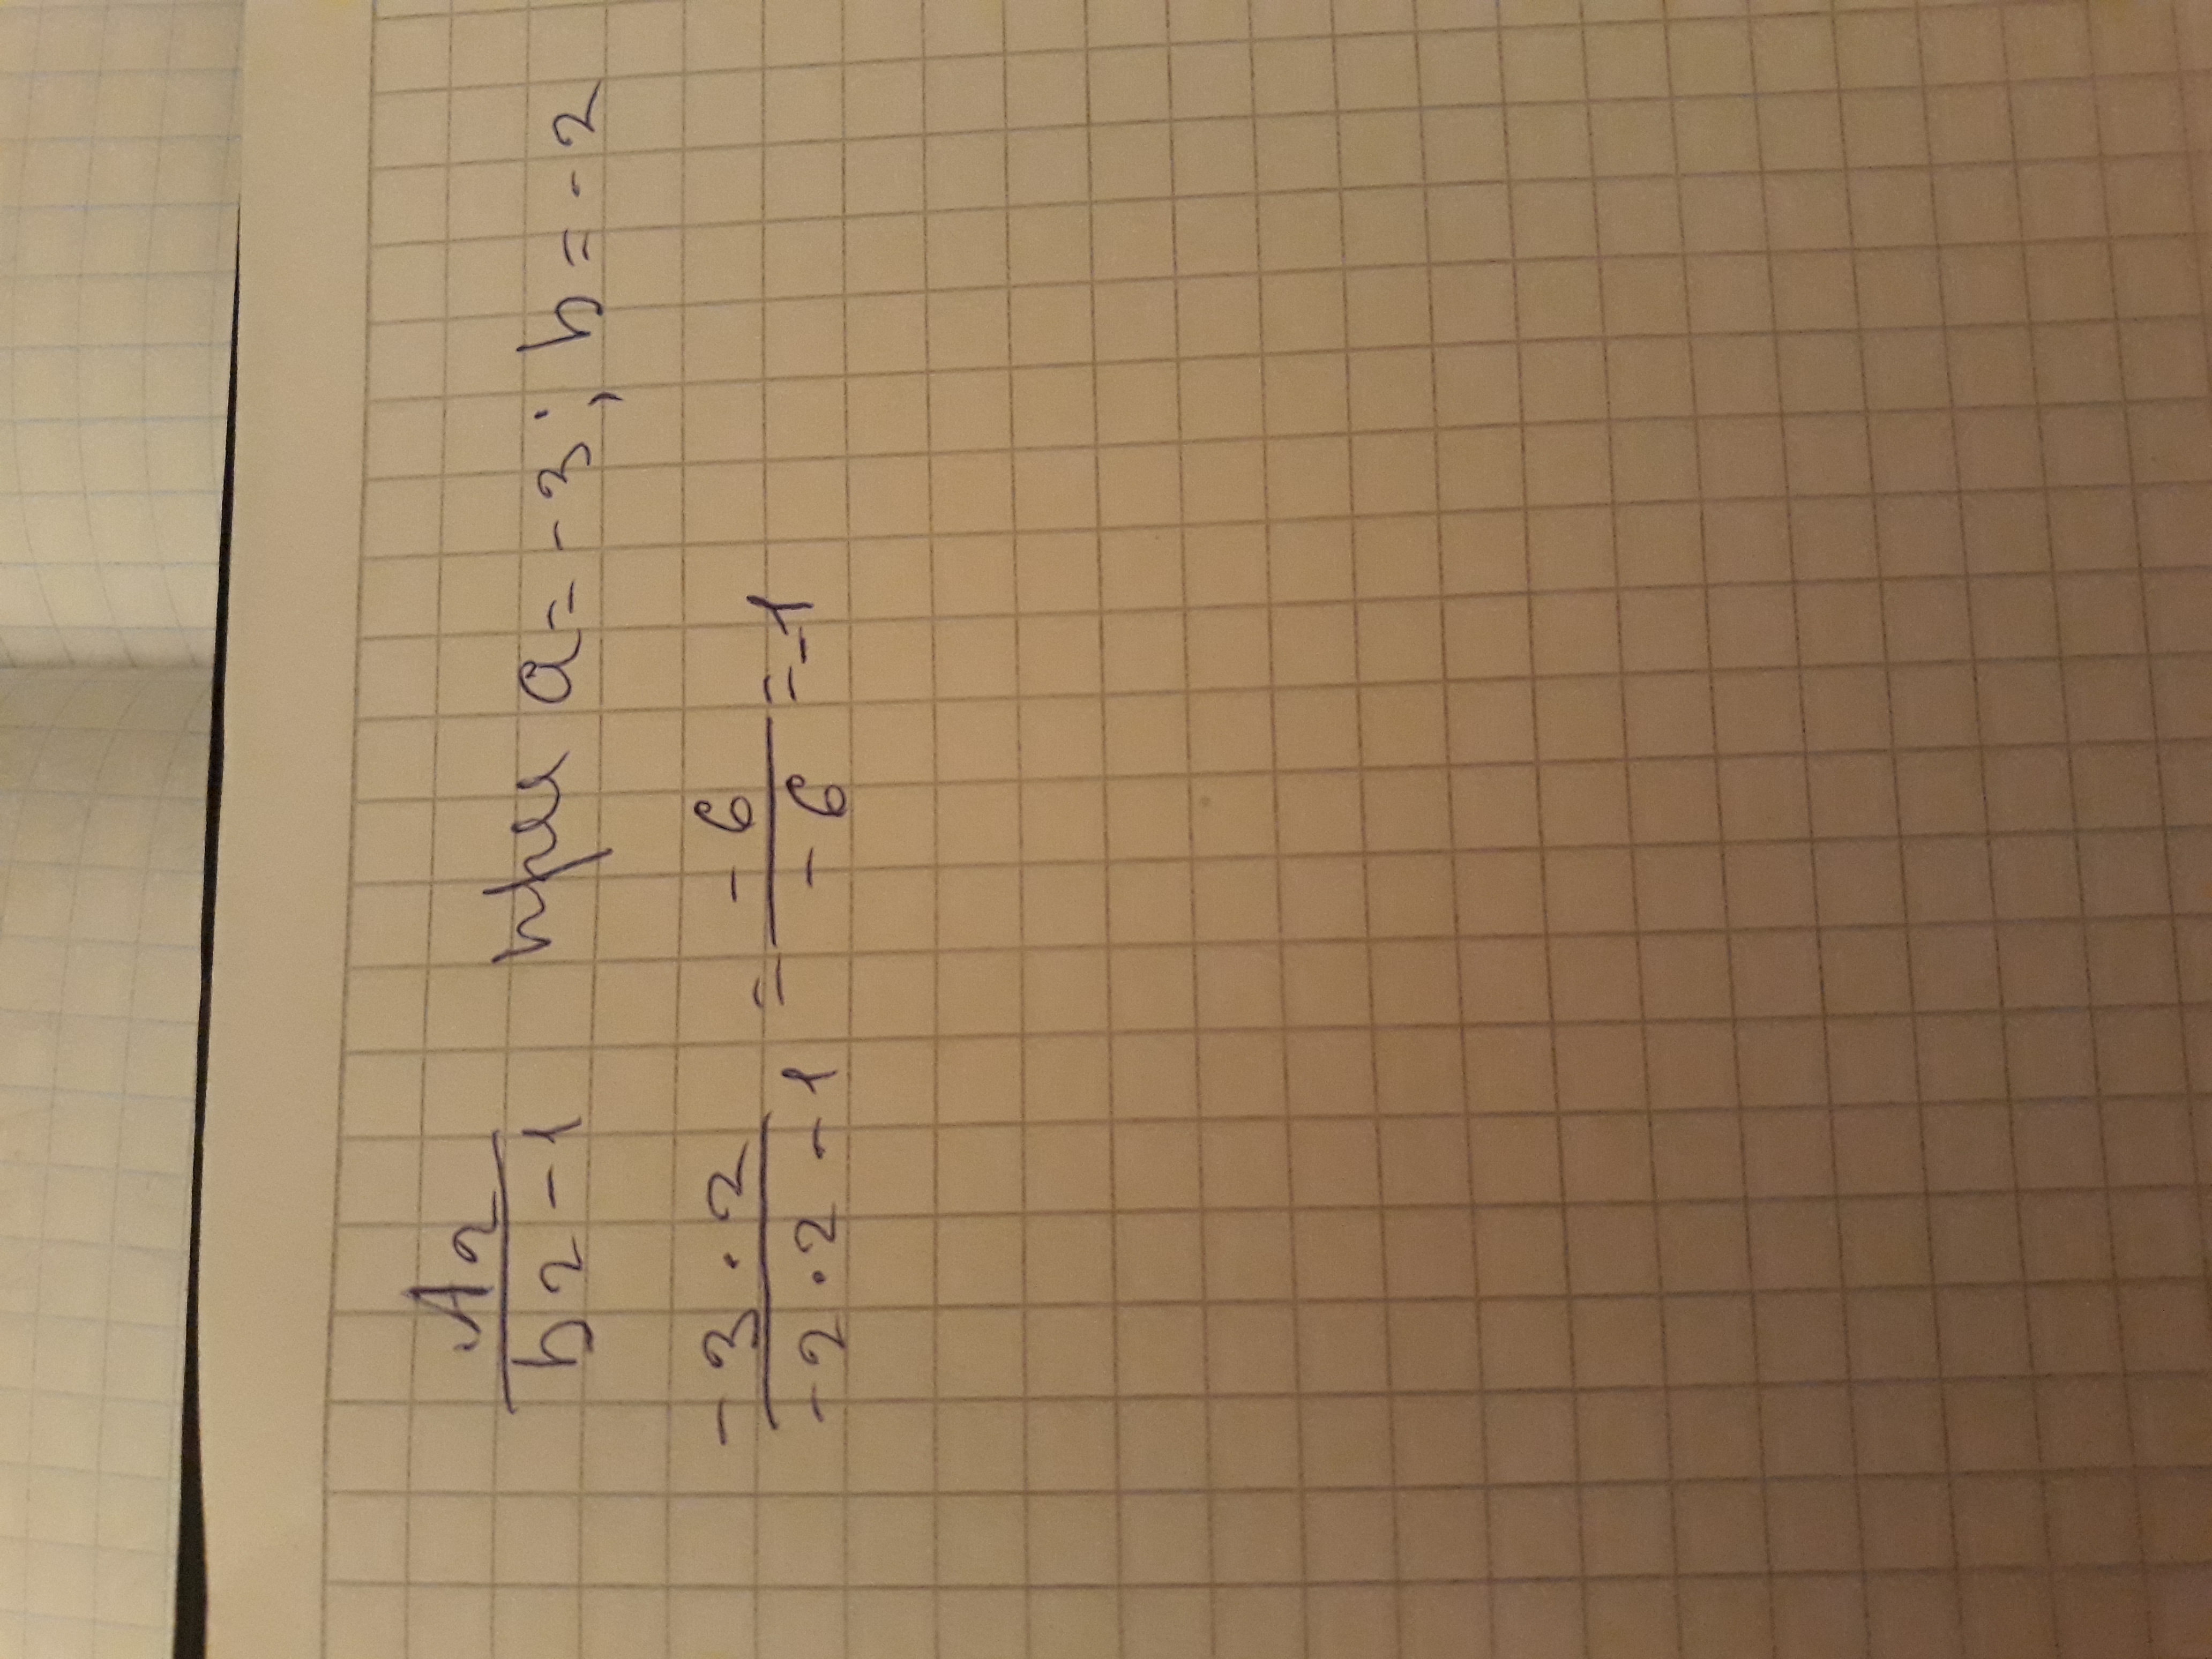 A2
b2-1 при a=-3; b=-2
-3·2 = -6 =-1
-2·2-1 -6